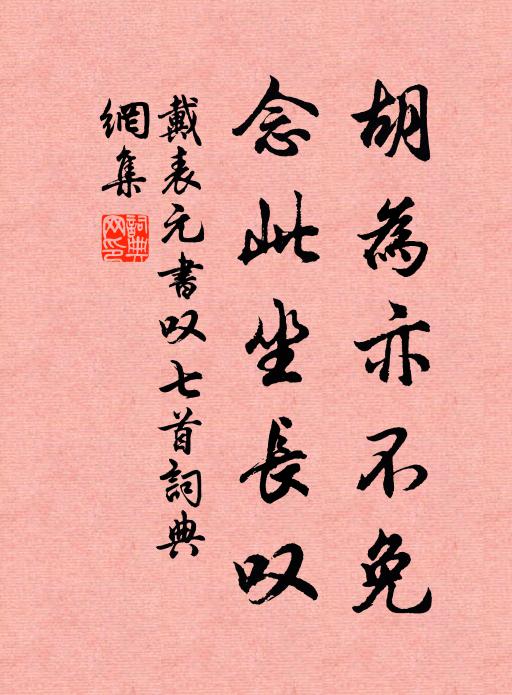 胡為亦不免
念此坐長叹
戴表元書叹七首詞典
網集
詞典網印